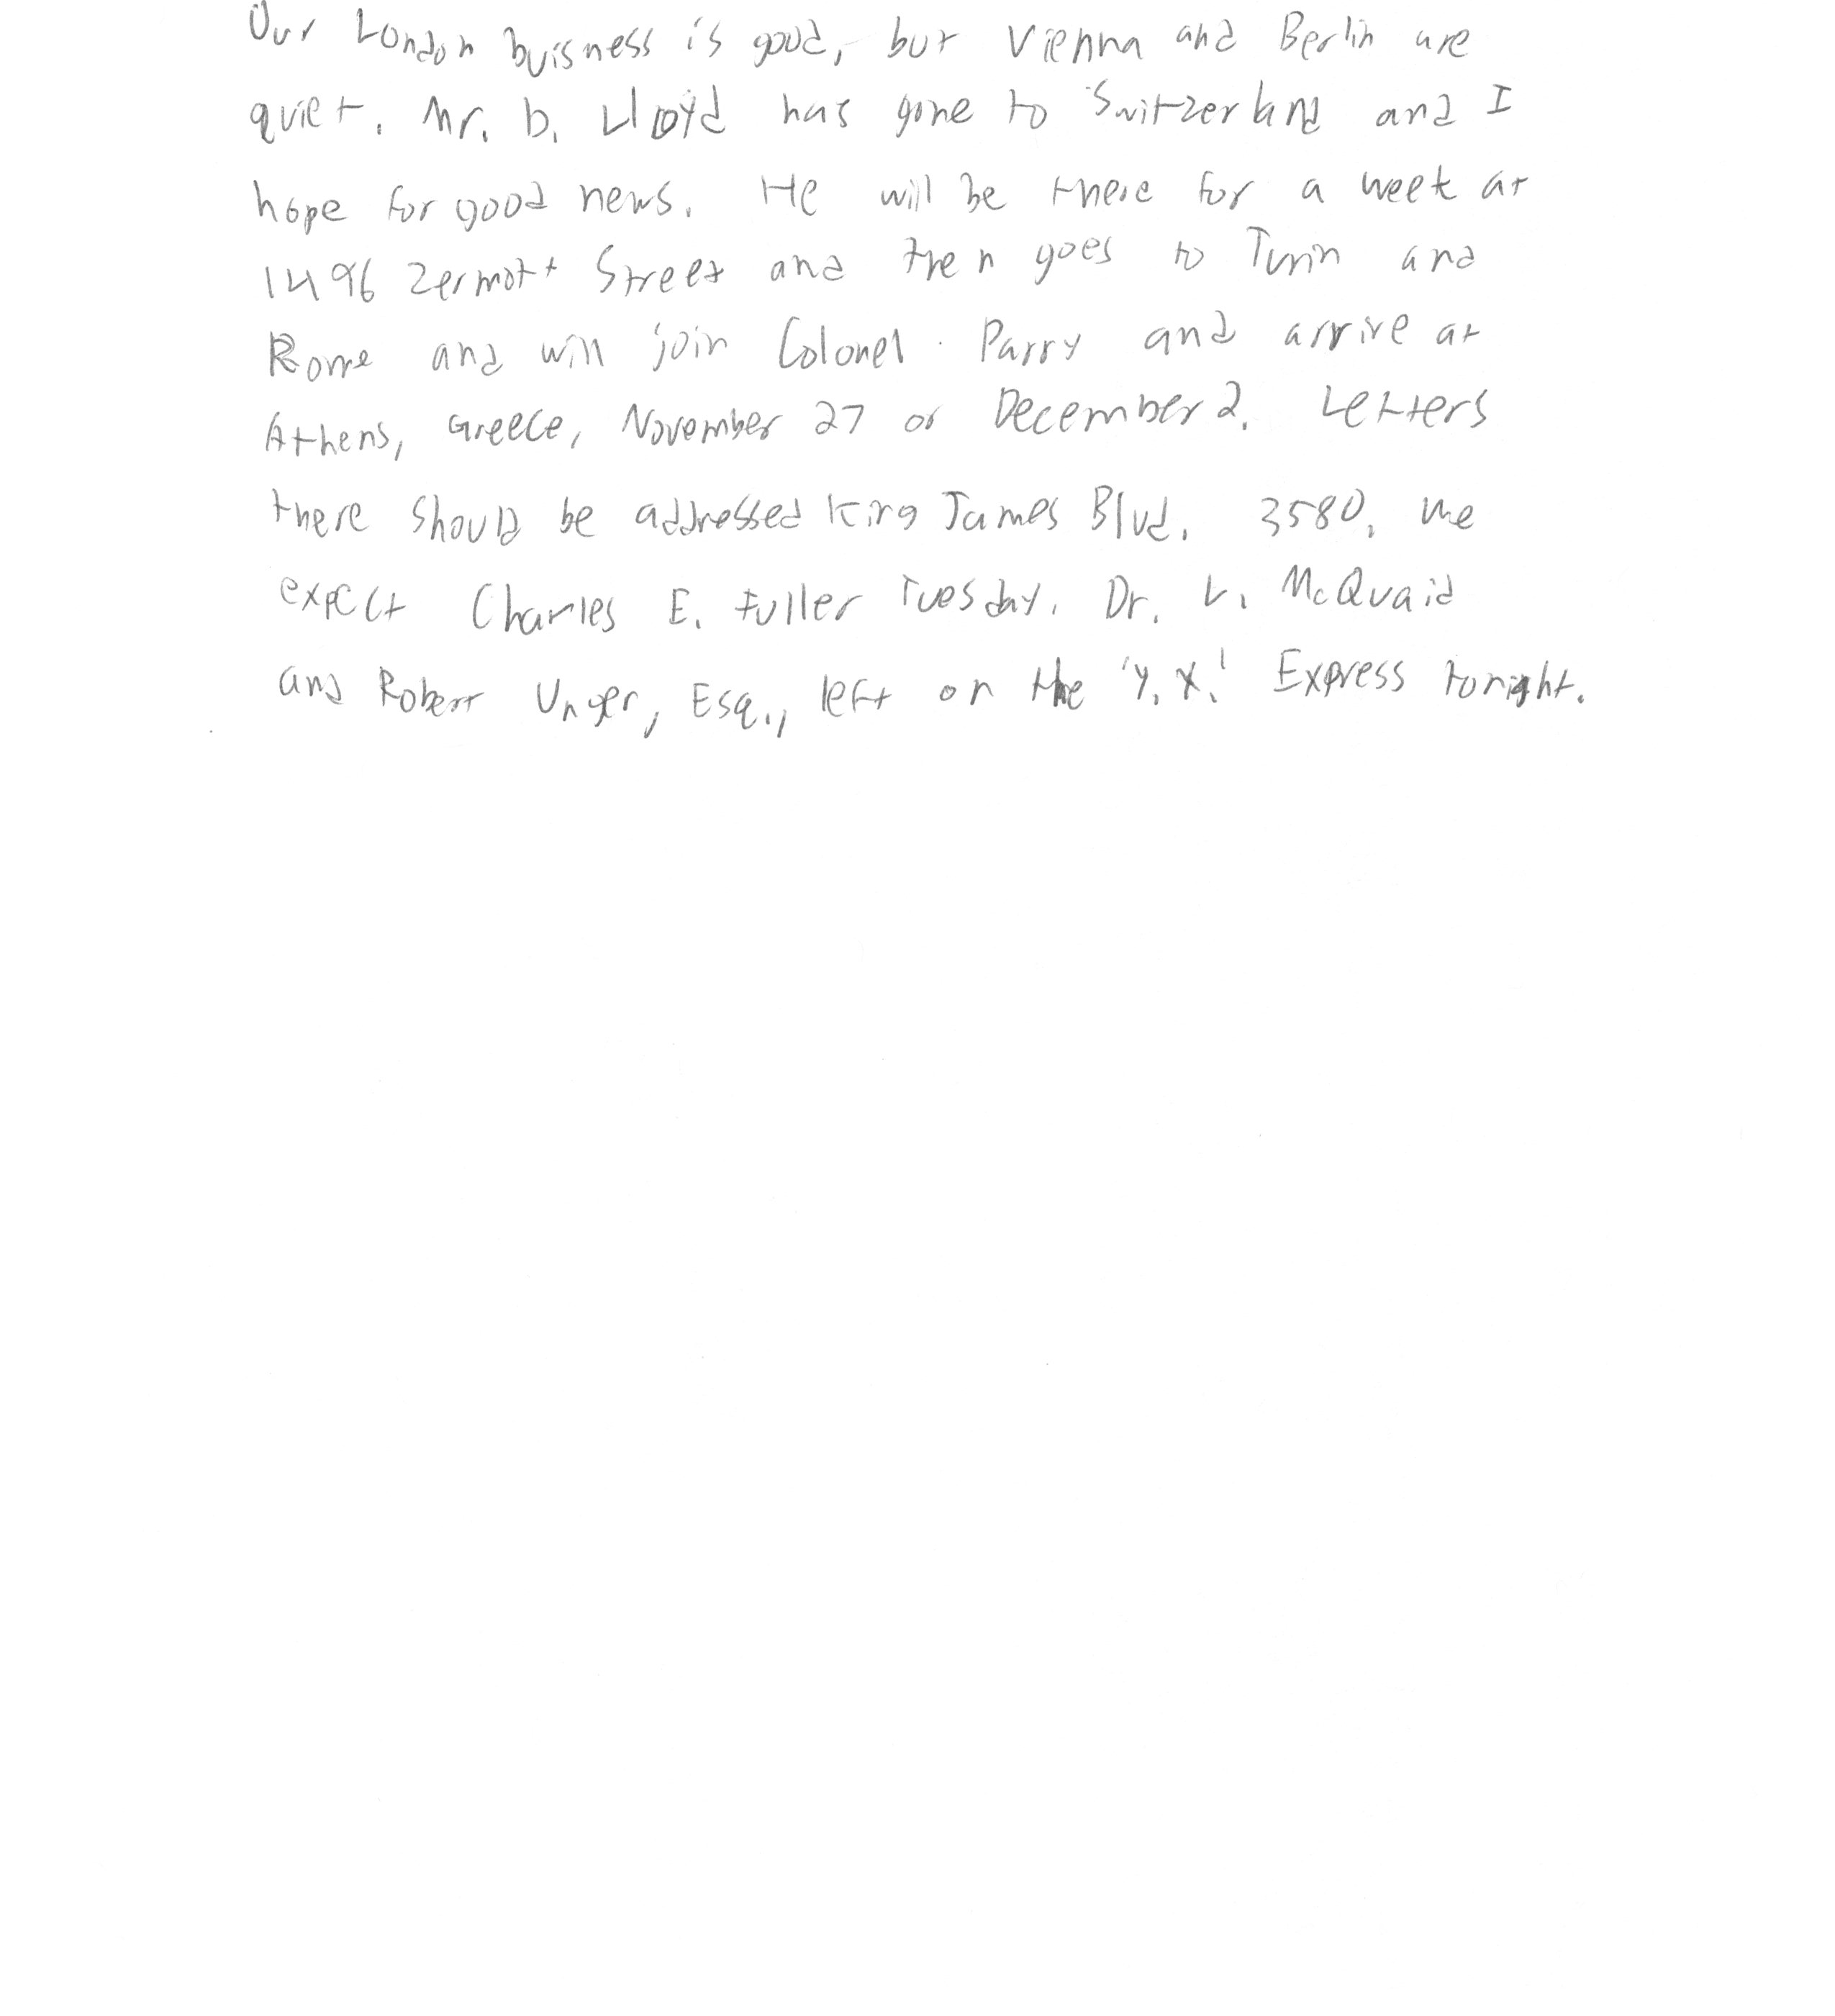 Our London buisness is good, but Vienna and Berlin are
quiet. Mr. D. Lloyd has gone to Switzerland and I
hope for good news. He will be there for a week at
1496 Zermott Street and then goes to Turin and
Rome and will join Colonel Parry and arrive at
Athens, Greece, November 27 or December 2. Letters
there should be addressed King James Blvd. 3580. We
expect Charles E. Fuller Tuesday. Dr. L. McQuaid
and Robert Unger, Esq., left on the 'Y. X.' Express tonight.